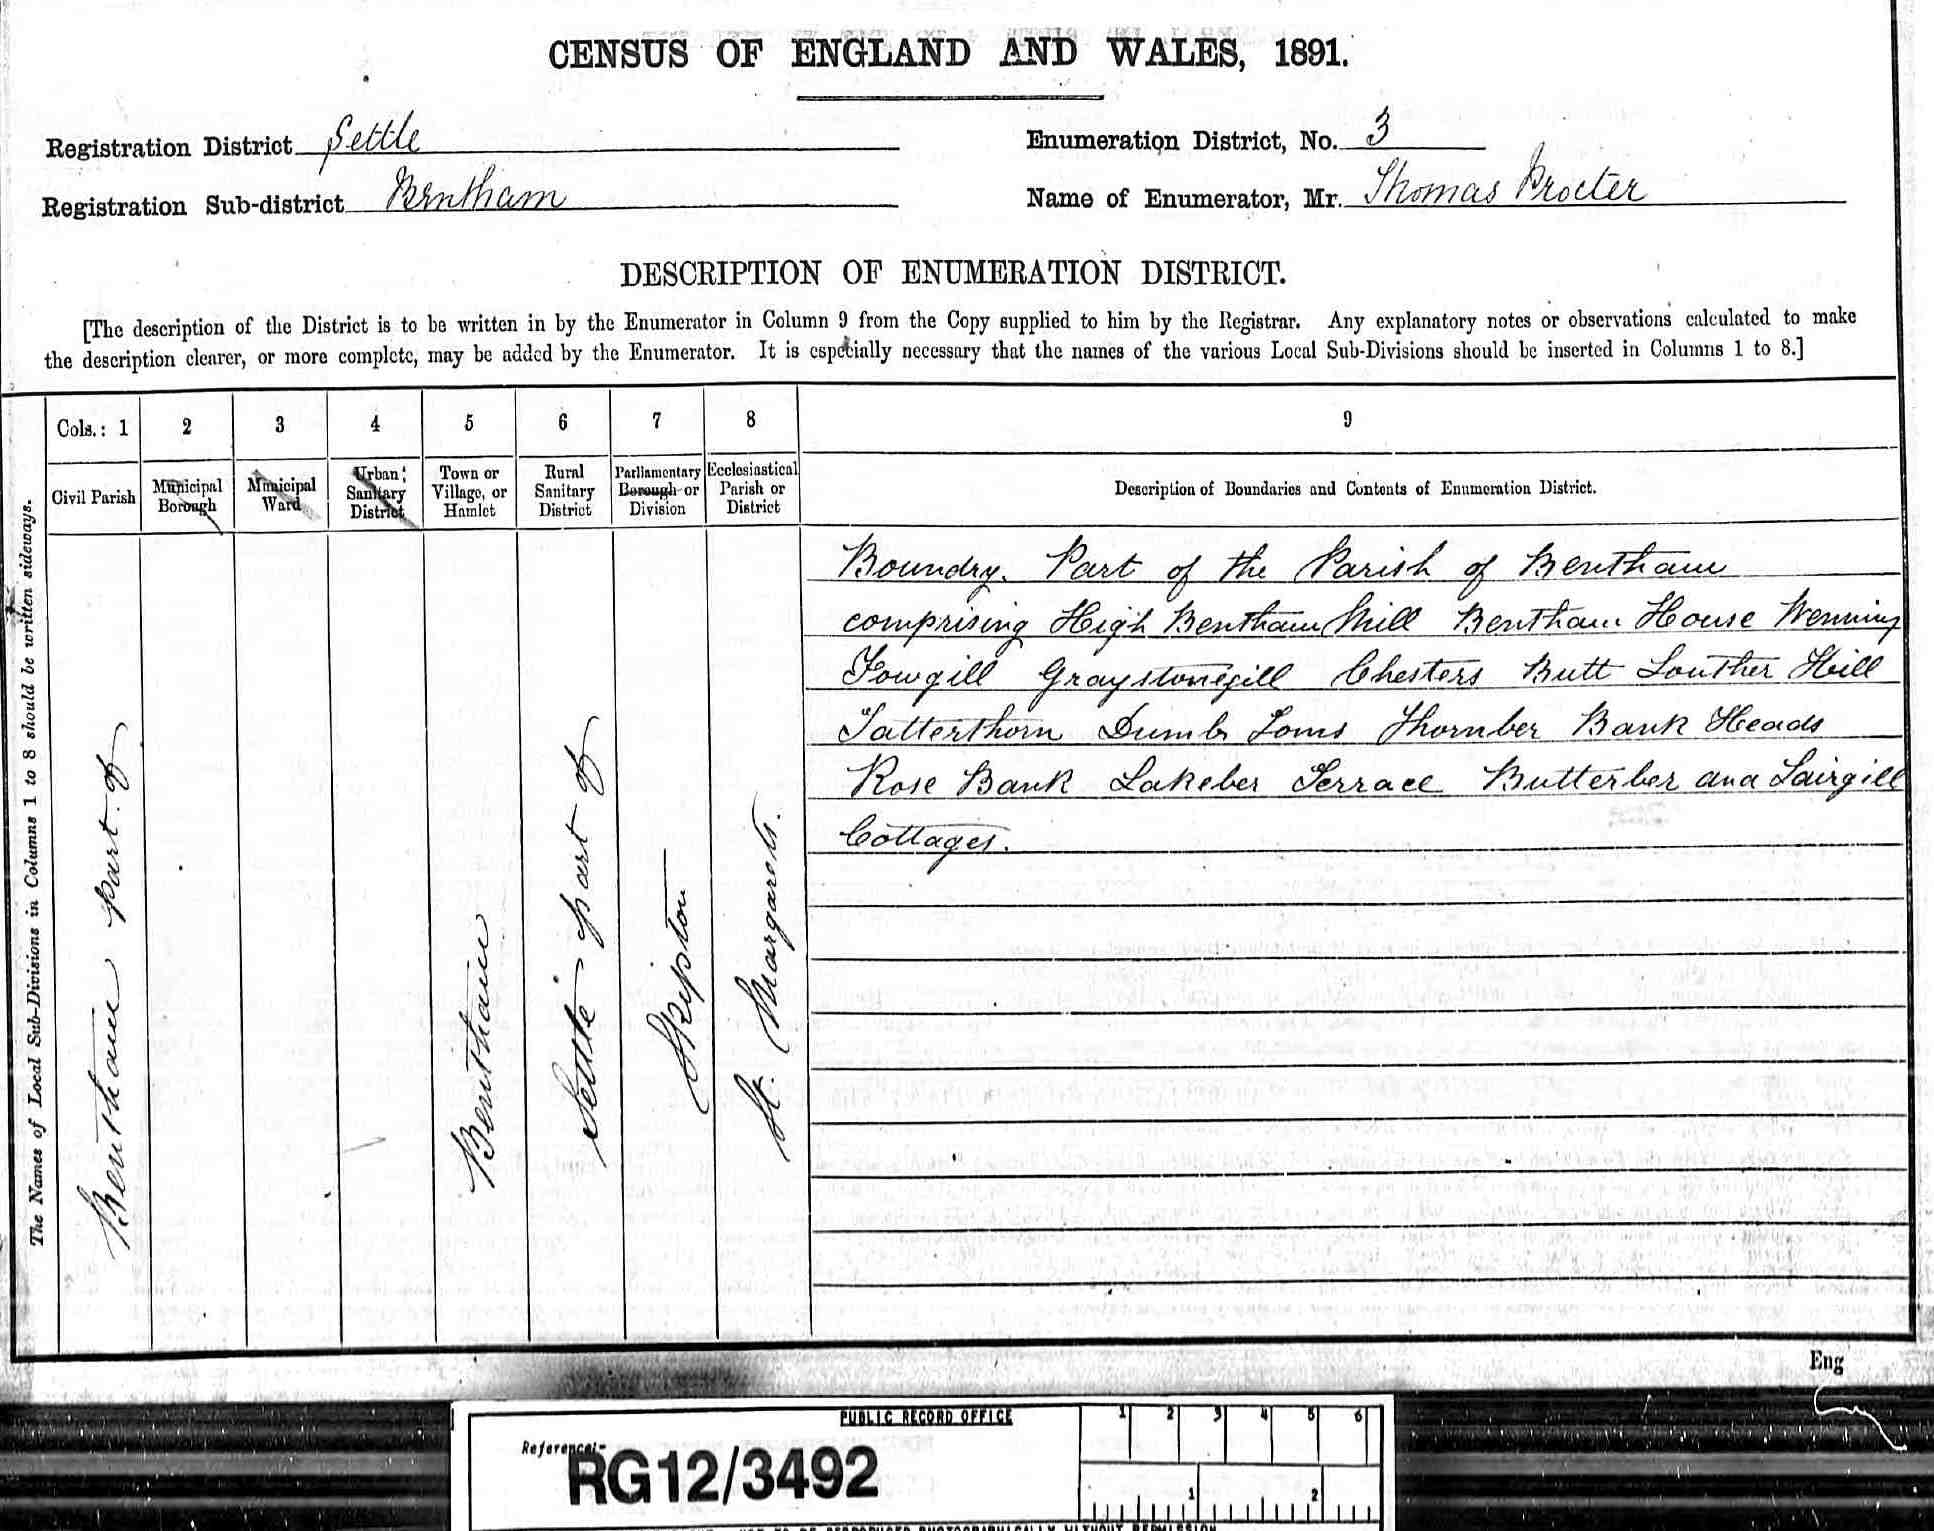 CENSUS OF ENGLAND AND WALES, 1891.
Registration District Settle
Enumeration District, No. 3
Registration Sub-district Bentham
Name of Enumerator, Mr. Thomas Procter
DESCRIPTION OF ENUMERATION DISTRICT.
[The description of the District is to be written in by the Enumerator in Column 9 from the Copy supplied to him by the Registrar. Any explanatory notes or observations calculated to make
the description clearer, or more complete, may be added by the Enumerator. It is especially necessary that the names of the various Local Sub-Divisions should be inserted in Columns 1 to 8.]
The Names of Local Sub-Divisions in Columns 1 to 8 should be written sideways.
Cols.: 1 2 3 4 5 6 7 8 9
Civil Parish
Municipal
Borough
Municipal
Ward
Urban
Sanitary
District
Town or
Village, or
Hamlet
Rural
Sanitary
District
Parliamentary
Borough or
Division
Ecclesiastical
Parish or
District
Description of Boundaries and Contents of Enumeration District.
Bentham part of
Bentham
Settle part of
Skipton
St. Margarets.
Boundry. Part of the Parish of Bentham
comprising High Bentham Mill Bentham House Wenning
Fowgill Graystonegill Chesters Butt Louther Hill
Tatterthorn Dumb Toms Thornber Bank Heads
Rose Bank Lakeber Terrace Butterber and Lairgill
Cottages.
Eng
PUBLIC RECORD OFFICE
Reference:-
RG12/3492
1 2 3 4 5 6
1 2